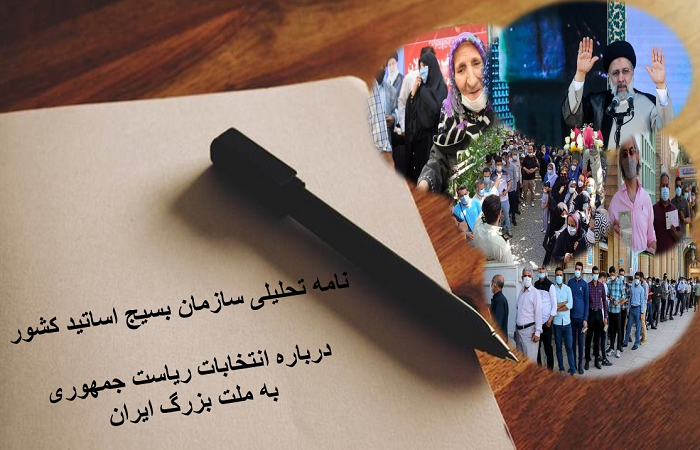 نامه تحلیلی سازمان بسیج اساتید کشور
درباره انتخابات ریاست جمهوری
به ملت بزرگ ایران